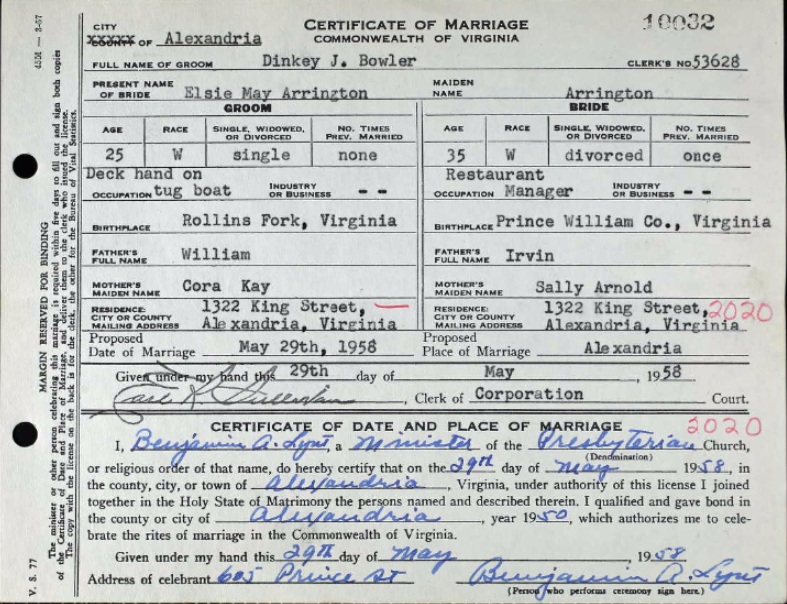 CERTIFICATE OF MARRIAGE
COMMONWEALTH OF VIRGINIA
10032
CITY
XXXXX OF Alexandria
FULL NAME OF GROOM Dinkey J. Bowler CLERK'S NO. 53628
PRESENT NAME OF BRIDE Elsie May Arrington MAIDEN NAME Arrington
GROOM BRIDE
AGE RACE SINGLE, WIDOWED, OR DIVORCED NO. TIMES PREV. MARRIED AGE RACE SINGLE, WIDOWED, OR DIVORCED NO. TIMES PREV. MARRIED
25 W single none 35 W divorced once
Deck hand on Restaurant
OCCUPATION tug boat INDUSTRY OR BUSINESS - - OCCUPATION Manager INDUSTRY OR BUSINESS - -
BIRTHPLACE Rollins Fork, Virginia BIRTHPLACE Prince William Co., Virginia
FATHER'S FULL NAME William FATHER'S FULL NAME Irvin
MOTHER'S MAIDEN NAME Cora Kay MOTHER'S MAIDEN NAME Sally Arnold
RESIDENCE: 1322 King Street, RESIDENCE: 1322 King Street, 2020
CITY OR COUNTY
MAILING ADDRESS Alexandria, Virginia CITY OR COUNTY MAILING ADDRESS Alexandria, Virginia
Proposed Date of Marriage May 29th, 1958 Proposed Place of Marriage Alexandria
Given under my hand this 29th day of May, 1958
, Clerk of Corporation Court.
CERTIFICATE OF DATE AND PLACE OF MARRIAGE 2020
I, Benjamin A. Lynt, a Minister of the Presbyterian Church,
(Denomination)
or religious order of that name, do hereby certify that on the 29th day of May 1958, in
the county, city, or town of Alexandria, Virginia, under authority of this license I joined
together in the Holy State of Matrimony the persons named and described therein. I qualified and gave bond in
the county or city of Alexandria, year 1950, which authorizes me to cele-
brate the rites of marriage in the Commonwealth of Virginia.
Given under my hand this 29th day of May 1958
Address of celebrant 605 Prince St Benjamin A. Lynt
(Person who performs ceremony sign here.)
V. S. 77
MARGIN RESERVED FOR BINDING
The minister or other person celebrating this marriage is required within five days to fill out and sign both copies
of the Certificate of Date and Place of Marriage, and deliver them to the clerk who issued the license.
The copy with the license on the back is for the clerk, the other for the Bureau of Vital Statistics.